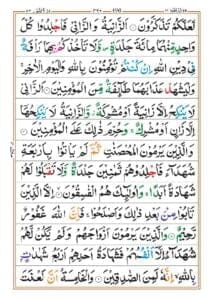 لَعَلَّكُمْ تَذَكَّرُوْنَ ۝ اَلزَّانِيَةُ وَالزَّانِيْ فَاجْلِدُوْا كُلَّ
وَاحِدٍ مِّنْهُمَا مِائَةَ جَلْدَةٍ ۪ وَّلَا تَاْخُذْكُمْ بِهِمَا رَاْفَةٌ
فِيْ دِيْنِ اللّٰهِ اِنْ كُنْتُمْ تُؤْمِنُوْنَ بِاللّٰهِ وَالْيَوْمِ الْاٰخِرِ ۚ
وَلْيَشْهَدْ عَذَابَهُمَا طَآئِفَةٌ مِّنَ الْمُؤْمِنِيْنَ ۝ اَلزَّانِيْ
لَا يَنْكِحُ اِلَّا زَانِيَةً اَوْ مُشْرِكَةً ۫ وَّالزَّانِيَةُ لَا يَنْكِحُهَاۤ
اِلَّا زَانٍ اَوْ مُشْرِكٌ ۚ وَحُرِّمَ ذٰلِكَ عَلَى الْمُؤْمِنِيْنَ ۝
وَالَّذِيْنَ يَرْمُوْنَ الْمُحْصَنٰتِ ثُمَّ لَمْ يَاْتُوْا بِاَرْبَعَةِ
شُهَدَآءَ فَاجْلِدُوْهُمْ ثَمٰنِيْنَ جَلْدَةً وَّلَا تَقْبَلُوْا لَهُمْ
شَهَادَةً اَبَدًا ۚ وَاُولٰٓئِكَ هُمُ الْفٰسِقُوْنَ ۝ اِلَّا الَّذِيْنَ
تَابُوْا مِنْۢ بَعْدِ ذٰلِكَ وَاَصْلَحُوْا ۚ فَاِنَّ اللّٰهَ غَفُوْرٌ
رَّحِيْمٌ ۝ وَالَّذِيْنَ يَرْمُوْنَ اَزْوَاجَهُمْ وَلَمْ يَكُنْ لَّهُمْ
شُهَدَآءُ اِلَّاۤ اَنْفُسُهُمْ فَشَهَادَةُ اَحَدِهِمْ اَرْبَعُ شَهٰدٰتٍۭ
بِاللّٰهِ ۙ اِنَّهٗ لَمِنَ الصّٰدِقِيْنَ ۝ وَالْخَامِسَةُ اَنَّ لَعْنَتَ